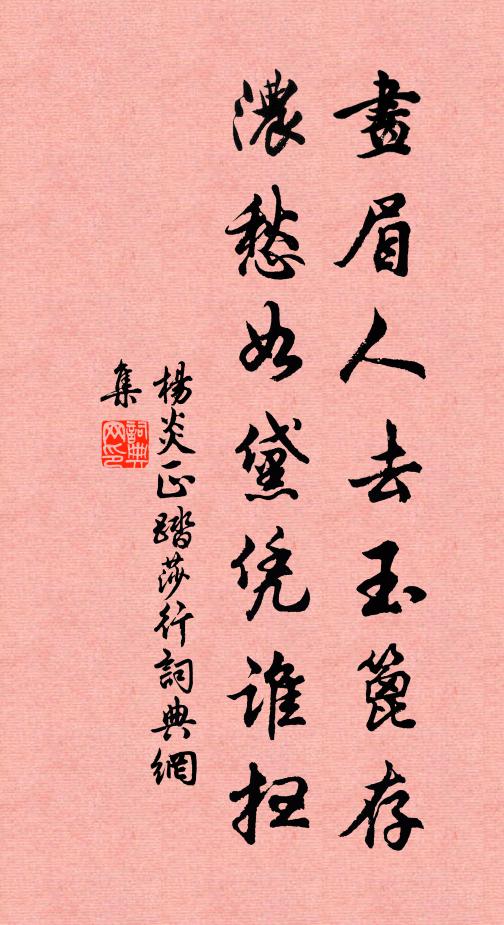 畫眉人去玉篦存
濃愁如黛凭誰扫
楊炎正踏莎行詞典網
集
詞典网印